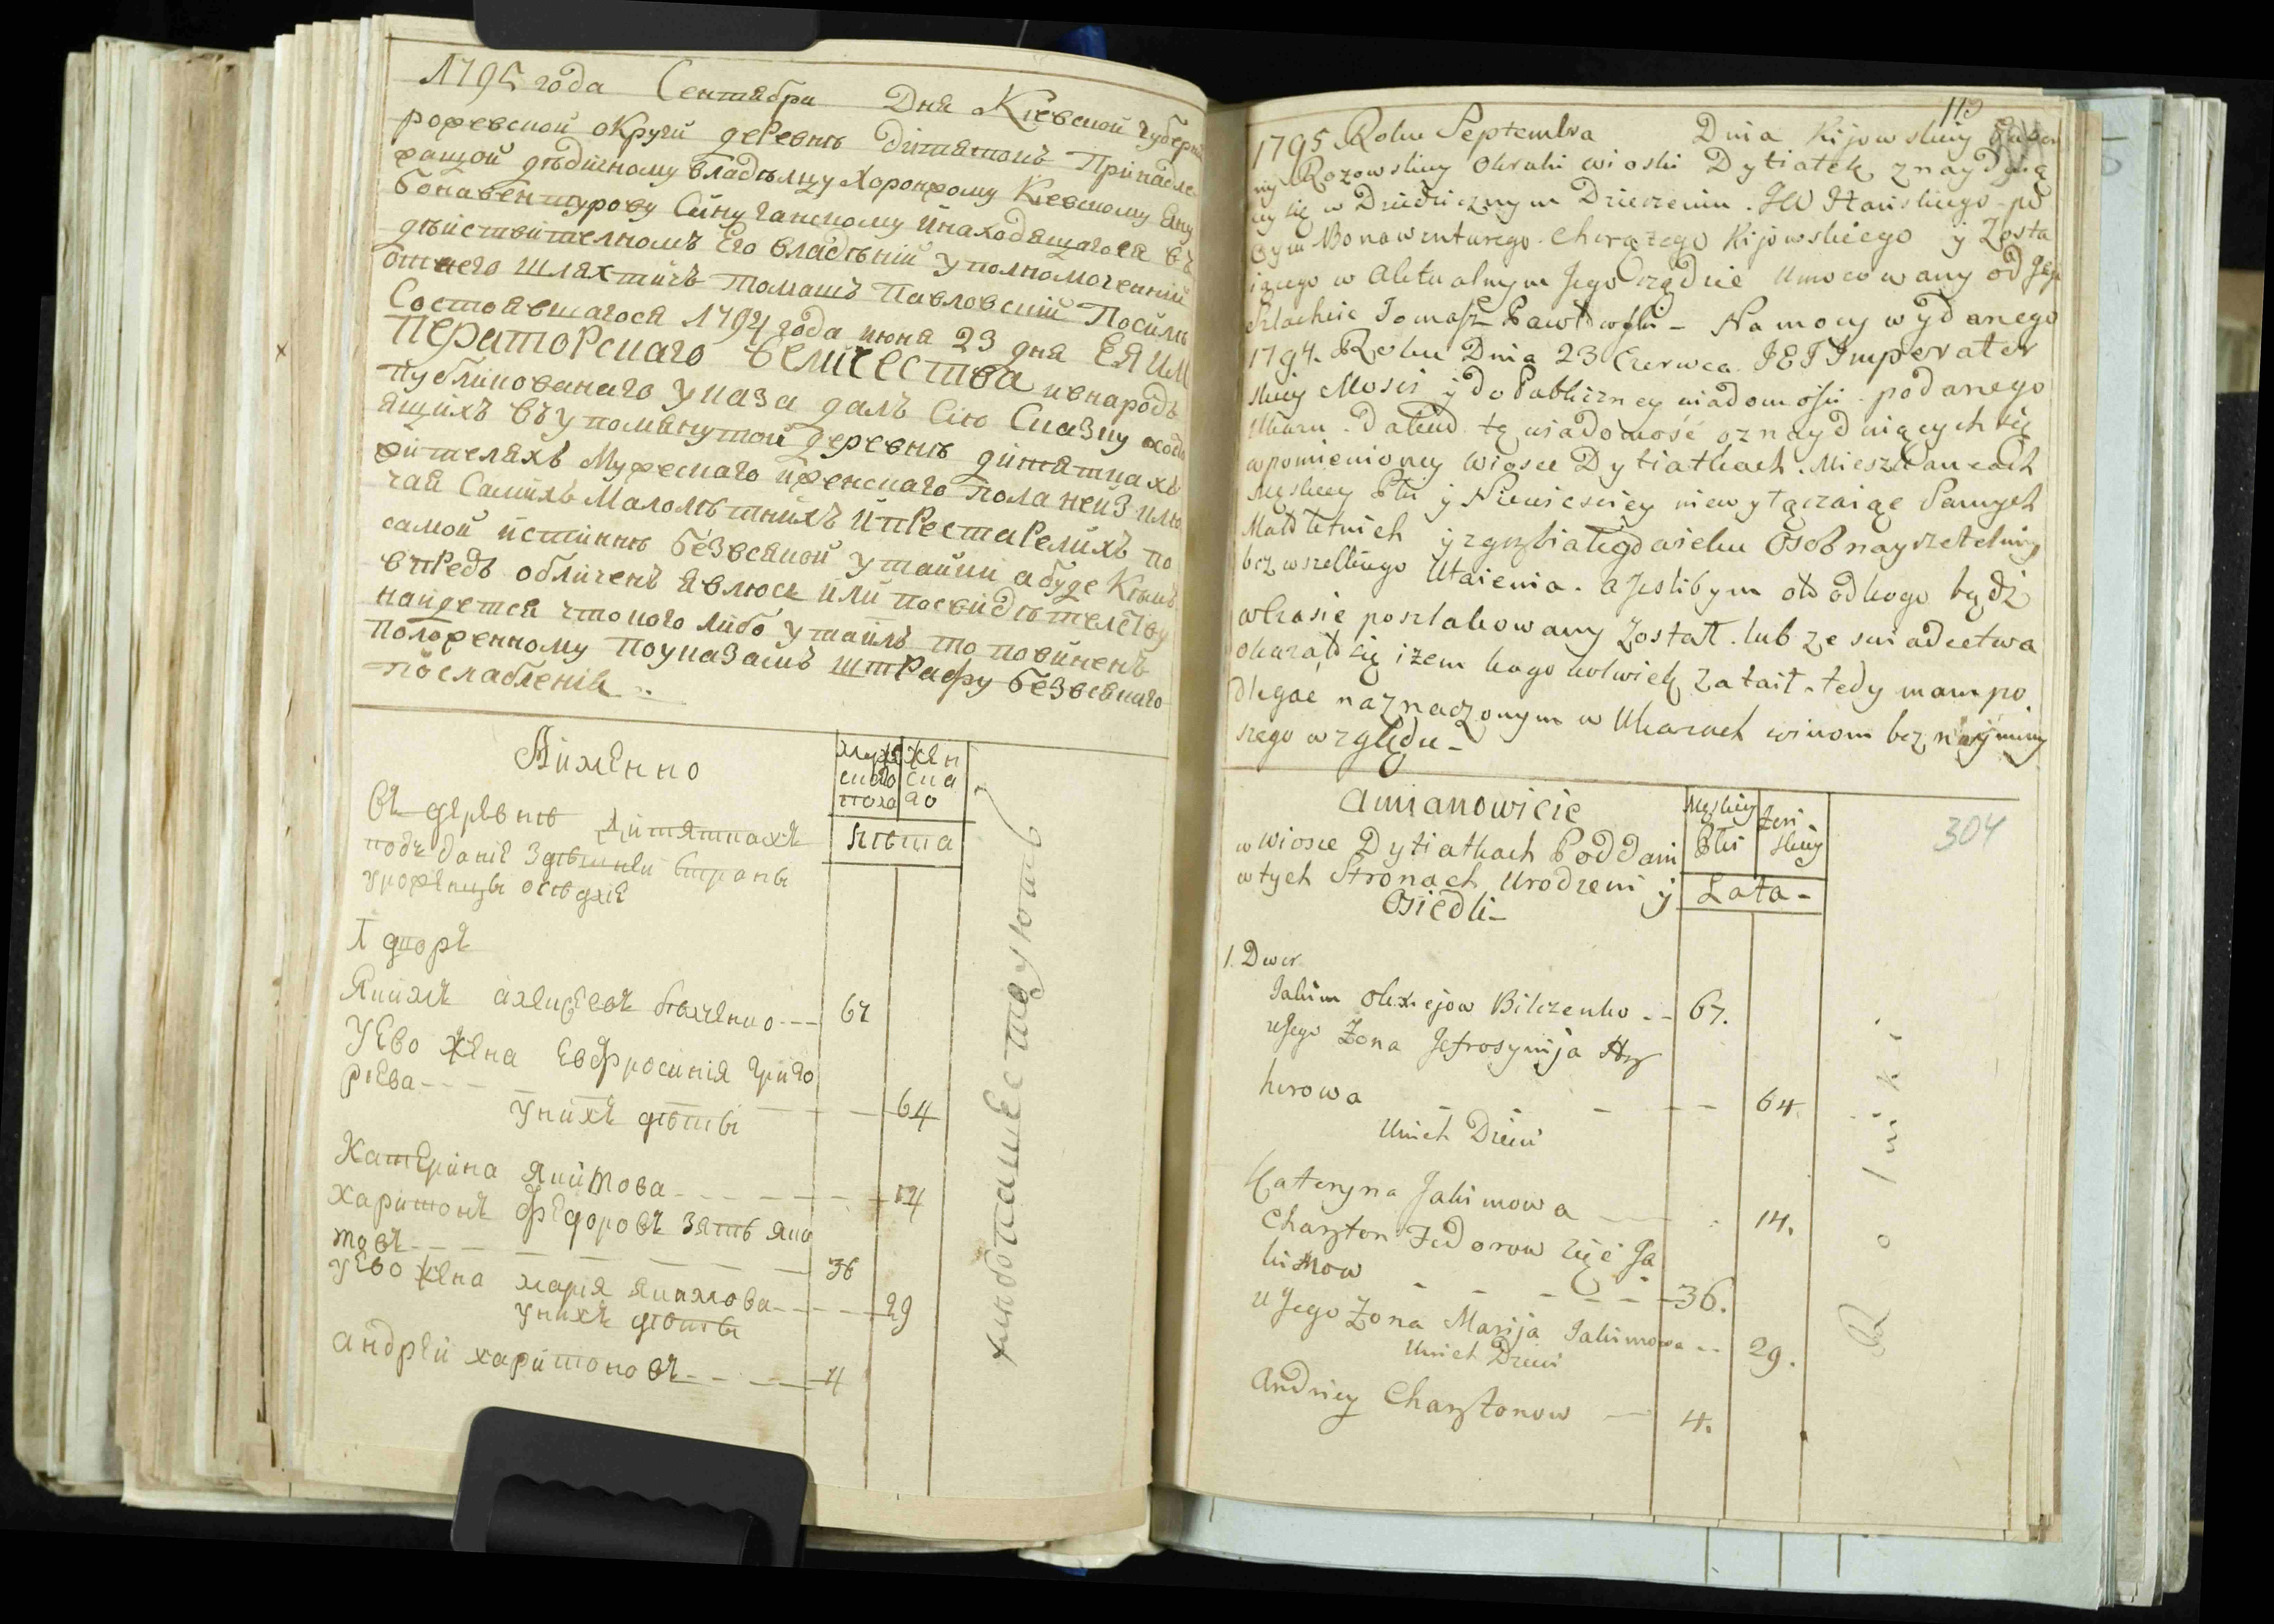 1795 года Сентября Дня Киевской губерни
рожевской округи деревнѣ дитяткахъ Принадле
жащой дѣдичному владѣлцу Хоронжому Киевскому Яну
бонавентурову Сину ганскому инаходящагося въ
дѣйствителномъ Его владѣнии уполномоченний
отнего шляхтичъ томашъ Павловский Посилѣ
Состоявшагося 1794 года июня 23 дня ЕЯ ИМ
Ператорскаго величества ивнародъ
публикованаго указа далъ Сию Сказку
ящихъ въупомянутой деревнѣ дитяткахъ
жителяхъ Мужескаго иженскаго пола неизклю
чая Самихъ Малолѣтнихъ иПрестарелихъ по
самой истиннѣ безвсякой утайки абуде Кѣмъ
впредь обличенъ явлюсь или посвидѣтелству
найдется чтокого либо утаилъ то повиненъ
положенному поуказамъ штрафу безвсякаго
послабления
Аименно
мужескаго пола
женскаго
лѣта
Въ деревнѣ Дитяткахъ
подъдание здѣшней страны
урожѣнцы осѣдлие
1 дворъ
Якимъ алексѣевъ билченко --- 67
УЕво жена Евфросиния григо
риева --- 64
Унихъ дѣти
Катерина якимова --- 14
Харитонъ Федоровъ зять яки
мовъ --- 36
уЕво жена мария якимова --- 29
унихъ дѣти
андрей харитоновъ --- 4
хлѣбопашествуютъ
113
1795 Roku Septembra Dnia Kijowskiey Guber
nij Rozowskiey Okruhi wioski Dytiatek znayduią
cey się w Dziedzicznym Dzierzeniu JW Hańskiego po
Oycu Bonawenturego Chorążego Kijowskiego y Zosta
iącego w Aktualnym Jego Rządzie Umocowany od Jego
Szlachcic Tomasz Pawłowski - Na mocy wydanego
1794. Roku Dnia 23 Czerwca JEJ Imperator
skiey Mości y do Publiczney wiadomości podanego
Ukazu. Dałem tę wiadomość oznayduiących się
wpomienioney Wiosce Dytiatkach Mieszkańcach
Męskiey Płci y Niewieściey niewyłączaiąc Samych
Małoletnich y zgrzybiałego wieku Osob nayrzetelniey
bez wszelkiego Utaienia. a Jeslibym od kogo bądź
wczasie poszlakowany Został. lub ze swiadectwa
okazał się iżem kogo kolwiek zataił. tedy mam po
dlegać naznaczonym w Ukazach winom bez naymniey
szego względu -
amianowicie
Męskiey Płci
Żeń-skiey
Lata -
304
w Wiosce Dytiatkach Poddani
w tych Stronach Urodzeni y
Osiedli -
1. Dwor
Jakim Olexiejow Bilczenko -- 67.
uJego Żona Jefrosynija Hry
horowa -- 64.
Unich Dzieci
Kateryna Jakimowa -- 14.
Charyton Fedorow zięć Ja
kimow -- 36.
uJego Żona Marija Jakimowa -- 29.
Unich Dzieci
Andriey Charytonow -- 4.
Rolniki